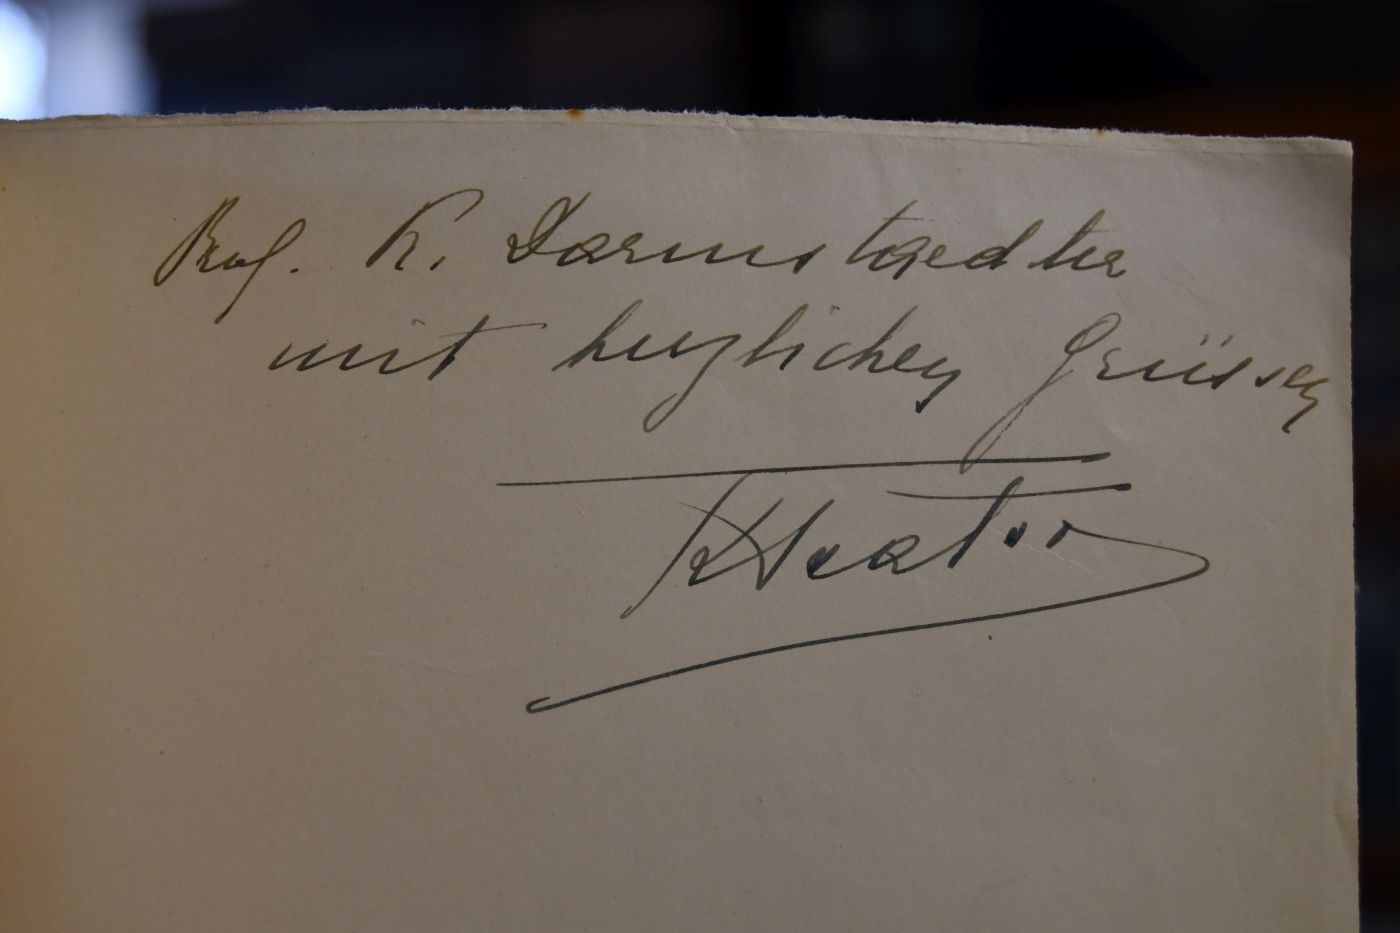 Prof. K. Darmstaedter
mit herzlichen Grüssen